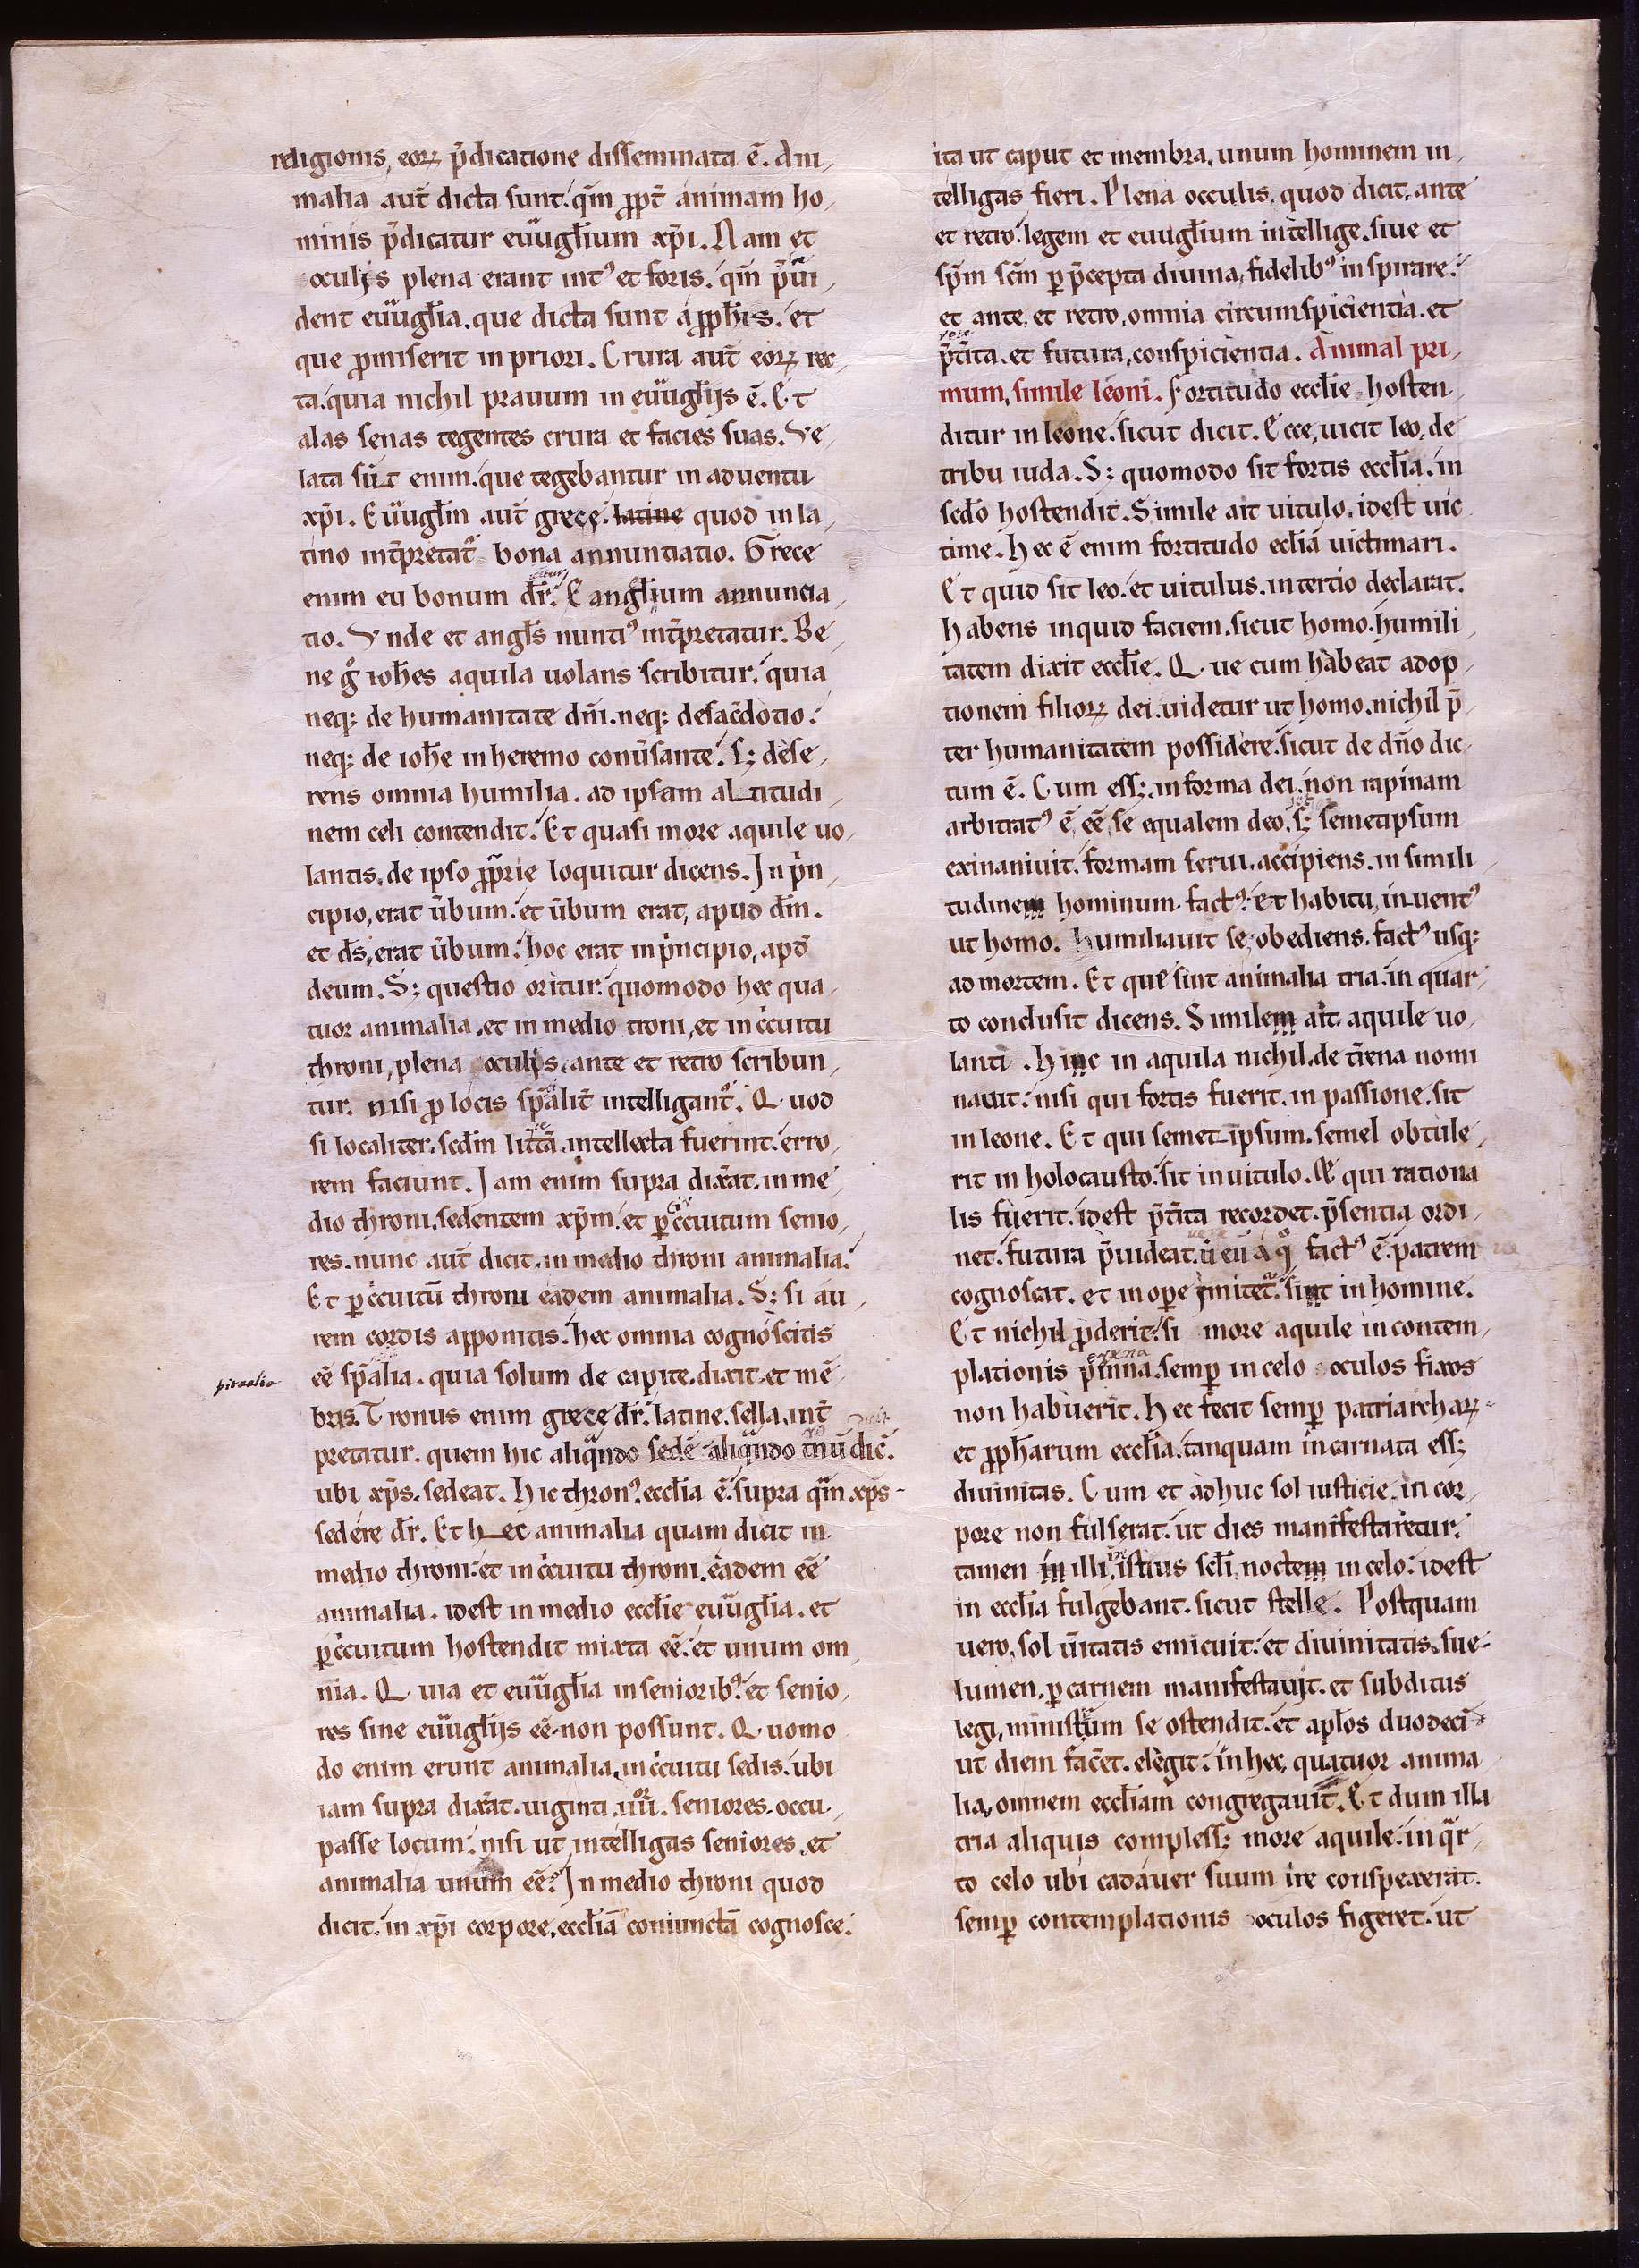 religionis, eoꝝ p̄dicatione disseminata ē. Ani,
malia aut̄ dicta sunt. qm̄ ꝓpt̄ animam ho,
minis p̄dicatur euu̇gl̄ium xp̄i. Nam et
oculijs plena erant int᾽ et foris. qm̄ p̄ui,
dent euugl̄ia. que dicta sunt a ꝓph̄is. et
que ꝓmiserit in priori. Crura aut̄ eoꝝ rec,
ta. quia nichil prauum in euugl̄ijs ē. Et
alas senas tegentes crura et facies suas. Ve,
lata sūt enim. que tegebantur in aduentu
xp̄i. Euugl̄in aut̄ grece. latine quod in la,
tino int̄pretat᷑ bona annuntiatio. Grece
enim eu bonum dr̄. Eangl̄ium annuncia,
icitur
tio. Vnde et angl̄s nunti᾽ int̄pretatur. Be,
ne g̊ ioh̄es aquila uolans scribitur. quia
neq; de humanitate dn̄i. neq; de sac̄dotio.
neq; de ioh̄e in heremo conūsante. s; dese,
rens omnia humilia. ad ipsam altitudi,
nem celi contendit. Et quasi more aquile uo,
lantis, de ipso ꝓprie loquitur dicens. In p̄n,
cipio, erat ūbum. et ūbum erat, apud dm̄.
et ds̄, erat ūbum. hoc erat in p̄ncipio, apd̄
deum. S; questio oritur. quomodo hec qua,
tuor animalia, et in medio troni, et in c̄cuitu
throni, plena oculijs, ante et retro scribun,
tur. nisi ꝓ locis sp̄alit̄ intelligant᷑. Quod
si localiter. scdm̄ litt̄a. intellecta fuerint. erro,
rem faciunt. Iam enim supra dix̄at. in me,
dio throni. sedentem xp̄m. et ꝑ c̄cuitum senio,
res. nunc aut̄ dicit. in medio throni animalia.
Et ꝑ c̄cuitū throni eadem animalia. S; si au,
rem cordis apponitis. hec omnia cognoscitis
eē sp̄alia. quia solum de capite. dixit. et mē,
piraalia
bris. Tronus enim grece dr̄. latine. sella. int̄
pretatur. quem hic aliqn̄do sedē aliqn̄do thnū dic̄.
ubi xp̄s. sedeat. Hic thron᾽. eccl̄ia ē. supra qm̄ xp̄s
sedere dr̄. Et hec animalia quam dicit in
medio throni. et in c̄cuitu throni. eadem eē
animalia. idest in medio eccl̄ie euugl̄ia. et
ꝑ c̄cuitum hostendit mixta eē. et unum om,
nia. Quia et euugl̄ia in seniorib᾽. et senio,
res sine euugl̄ijs eē non possunt. Quomo
do enim erunt animalia, in c̄cuitu sedis. ubi
iam supra dix̄at. uiginti. iiii͛. seniores. occu,
passe locum. nisi ut intelligas seniores, et
animalia unum eē. In medio throni quod
dicit. in xp̄i corpore, eccl̄iā coniunctā cognosce.
ita ut caput et membra, unum hominem in,
telligas fieri. Plena occulis, quod dicit, ante
et retro. legem et euugl̄ium intellige. siue et
sp̄m scm̄ ꝑ p̄cepta diuina, fidelib᾽ inspirare.
et ante, et retro, omnia circumspicientia. et
p̄t̄ita. et futura, conspicientia. Animal pri,
mum, simile leoni. Fortitudo eccl̄ie hosten,
ditur in leone. sicut dicit. Ecce, uicit leo, de
tribu iuda. S; quomodo sit fortis eccl̄ia. in
scd̄o hostendit. Simile ait uitulo. idest uic
time. Hec ē enim fortitudo ecl̄ia uictimari.
Et quid sit leo. et uitulus. in tertio declarat.
habens inquid faciem. sicut homo. humili,
tatem dixit eccl̄ie. Que cum habeat adop,
tionem filioꝝ dei. uidetur ut homo. nichil p̄
ter humanitatem possidere. sicut de dn̄o dic,
tum ē. Cum ess; in forma dei. non rapinam
arbitrat᾽ ē, eē se equalem deo. s; semetipsum
exinaniuit. formam serui. accipiens. in simili,
tudinem hominum. fact᾽. et habitu, inuent᾽
ut homo. humiliauit se, obediens. fact᾽ usq;
ad mortem. Et que sint animalia tria. in quar,
to conclusit dicens. Similem ait. aquile uo,
lanti. Hinc in aquila nichil. de t̄rena nomi
nauit. nisi qui fortis fuerit. in passione. sit
in leone. Et qui semet ipsum. semel obtule,
rit in holocausto. sit in uitulo. Et qui rationa
lis fuerit. idest p̄t̄ita recordet. p̄sentia ordi,
net. futura p̄uideat. ū eū a q̊ fact᾽ ē. patrem
cognoscat. et in opere imitet᷑. sint in homine.
Et nichil ꝓderit. si more aquile in contem,
plationis pinna. semꝑ in celo oculos fixos
non habuerit. Hec fecit semꝑ patriarchaꝝ
et ꝓph̄arum eccl̄ia. tanquam incarnata ess;
diuinitas. Cum et adhuc sol iusticie. in cor,
pore non fulserat. ut dies manifestaretur.
tamen in illi istius scl̄i noctem in celo. idest
in eccl̄ia fulgebant. sicut stelle. Postquam
uero, sol ūitatis emicuit. et diuinitatis, sue
lumen, ꝑ carnem manifestauit. et subditus
legi, minist̄um se ostendit. et apl̄os duodeci
ut diem fac̄et. elegit. in hec, quatuor anima,
lia, omnem eccl̄iam congregauit. Et dum illa
tria aliquis compless; more aquile. in q̄r,
to celo ubi cadauer suum ire conspexerat.
semꝑ contemplationis oculos figeret. ut